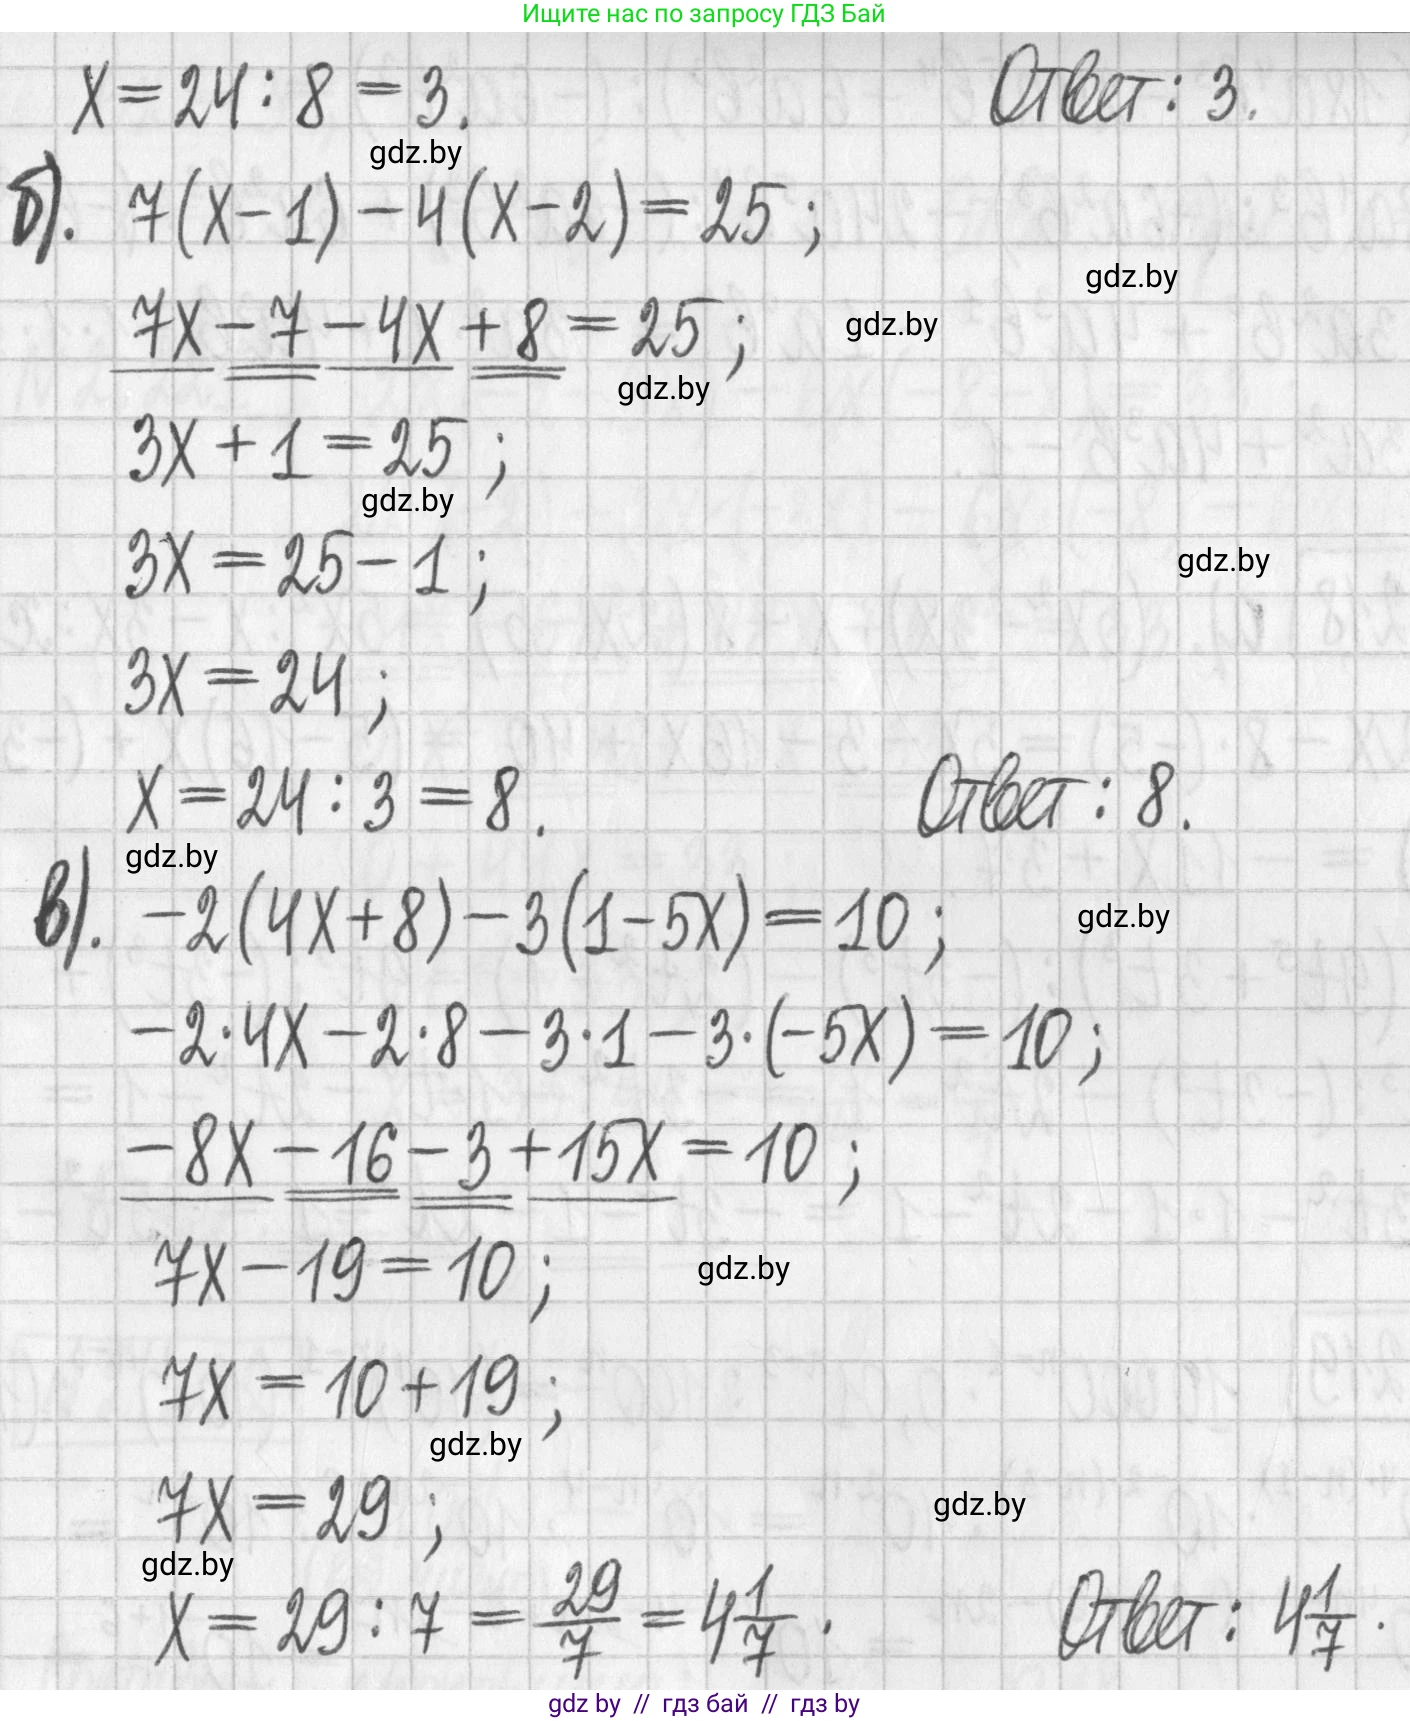 Ищите нас по запросу ГДЗ Бай
x = 24 : 8 = 3. Ответ: 3.
gdz.by
б). 7(x - 1) - 4(x - 2) = 25;
gdz.by
7x - 7 - 4x + 8 = 25; gdz.by
gdz.by
3x + 1 = 25;
gdz.by
3x = 25 - 1; gdz.by
3x = 24;
x = 24 : 3 = 8. Ответ: 8.
gdz.by
в). -2(4x + 8) - 3(1 - 5x) = 10; gdz.by
-2·4x - 2·8 - 3·1 - 3·(-5x) = 10;
-8x - 16 - 3 + 15x = 10;
7x - 19 = 10; gdz.by
7x = 10 + 19;
gdz.by
7x = 29; gdz.by
gdz.by
x = 29 : 7 = 29/7 = 4 1/7. Ответ: 4 1/7.
gdz by // гдз бай // гдз by